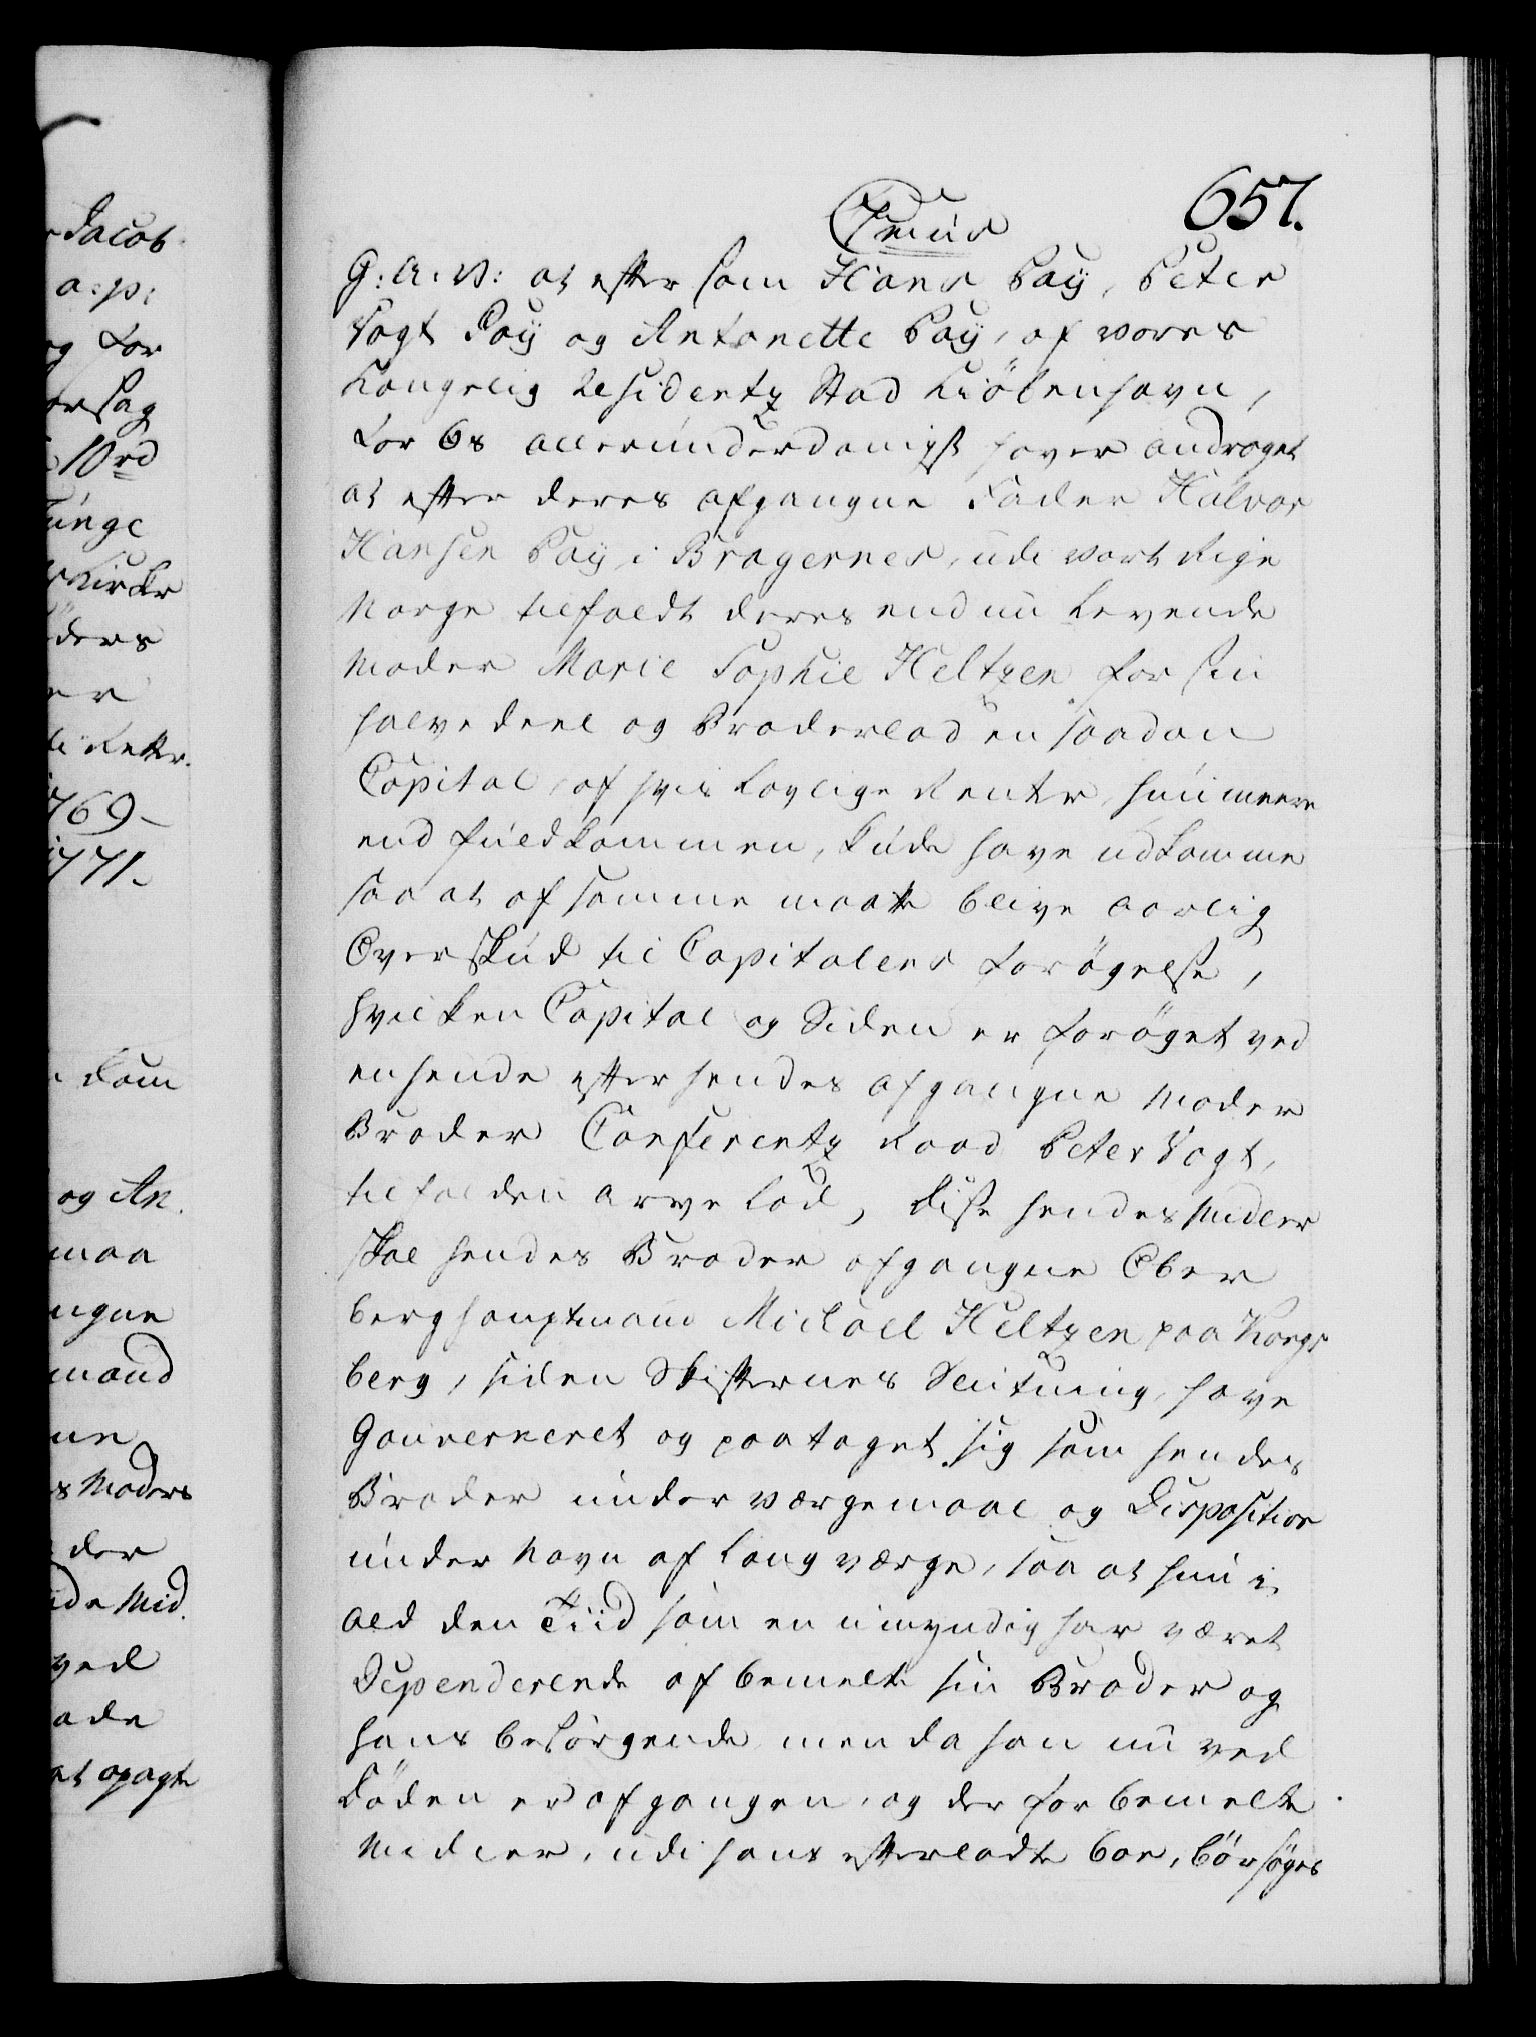 Jacob
a: p:
og for
10rd
unge
ders
er
1769-
1771-
og An.
maa
ngne
mand
s Moders
der
Mid.
ved
ade
at opagte
657.
G: A: V: at efter som Hans Pay, Peter
Vogt Pay og Antonette Pay, af vores
Kongelig Residentz Stad Kiöbenhavn,
for Os allerunderdanigst haver andraget
at efter deres afgangne Fader Halvor
Hansen Pay i Bragernes, udi vort Rige
Norge tilfaldt deres endnu levende
Moder Marie Sophie Heltzen for sin
halvedeel og Broderlod en saadan
Capital, af hvis lovlige Renter, hun meere
end fuldkommen, kunde have udkomme
saa at af samme maatte blive aarlig
Overskud til Capitalens forögelse,
hvilken Capital og Siden er foröget ved
en hende efter hendes afgangne Moder
Broder Conferentz Raad Peter Vogt,
tilfalden Arve Lod, Disse hendes Midler
skal hendes Broder afgangne Ober
berghauptmand Michael Heltzen paa Kongs
berg, siden Skifternes Slutning, have
Gouverneret og paataget sig som hendes
Broder under værgemaal og Disposition
under Navn af Laugværge, saa at hun i
ald den Tiid som en umyndig har været
Dependerende af bemelte sin Broder og
hans besörgende men da han nu ved
Döden er afgangen, og der for bemelte
Midler, udi hans efterladte Boe, bör söges